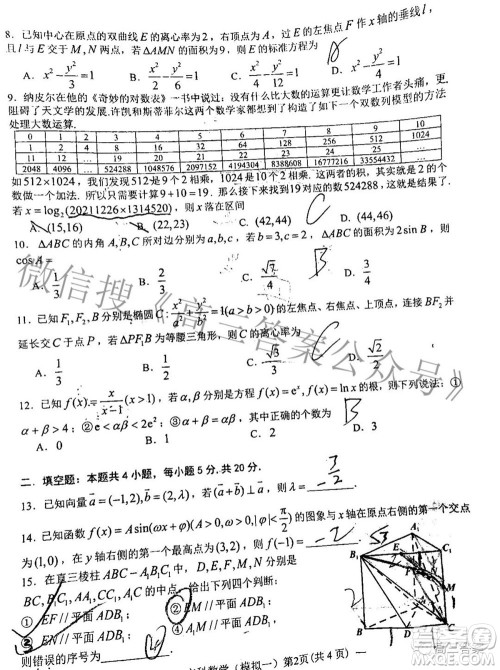 8. 已知中心在原点的双曲线E的离心率为2，右顶点为A，过E的左焦点F作x轴的垂线l，
且l与E交于M,N两点，若ΔAMN的面积为9，则E的标准方程为 A
A. x²-y²/3=1 B. x²/2-y²/6=1 C. x²/4-y²/12=1 D. x²/4-y²/2=1
9. 纳皮尔在他的《奇妙的对数表》一书中说过：没有什么比大数的运算更让数学工作者头痛，更
阻碍了天文学的发展.许凯和斯蒂菲尔这两个数学家都想到了构造了如下一个双数列模型的方法
处理大数运算.
0 1 2 3 4 5 6 7 8 9 10
1 2 4 8 16 32 64 128 256 512 1024
11 12 … 19 20 21 22 23 24 25 …
2048 4096 … 524288 1048576 2097152 4194304 8388608 16777216 33554432 …
如512×1024，我们发现512是9个2相乘，1024是10个2相乘.这两者的积，其实就是2的个
数做一个加法.所以只需要计算9+10=19.那么接下来找到19对应的数524288，这就是结果了.
若x=log₂(20211226×1314520)，则x落在区间 C
A. (15,16) B. (22,23) C. (42,44) D. (44,46)
10. ΔABC的内角A,B,C所对边分别为a,b,c，若b=3,c=2，ΔABC的面积为2sinB，则
cosA= B
A. 1/3 B. 2/3 C. √7/4 D. 3/4
11. 已知F₁,F₂,B分别是椭圆C:x²/a²+y²/b²=1(a>b>0)的左焦点、右焦点、上顶点，连接BF₂并
延长交C于点P，若ΔPF₁B为等腰三角形，则C的离心率为
A. 1/3 B. 1/2 C. √3/3 D. √2/2
12. 已知f(x)=x/(x-1)(x>1)，若α,β分别是方程f(x)=eˣ,f(x)=lnx的根，则下列说法：①
α+β>4；②eβ<αβ<2e²；③α<β，其中正确的个数为
A. 0 B. 1 C. 2 D. 3
二. 填空题：本题共4小题，每小题5分.共20分.
13. 已知向量a=(-1,2),b=(2,λ)，若(a+b)⊥a，则λ= 3/2
14. 已知函数f(x)=Asin(ωx+φ)(A>0,ω>0,|φ|<π/2)的图象与x轴在原点右侧的第一个交点
为(1,0)，在y轴右侧的第一个最高点为(3,2)，则f(-1)= -2
15. 在直三棱柱ABC-A₁B₁C₁中，D,E,F,M,N分别是
BC,B₁C₁,AA₁,CC₁,A₁C的中点.给出下列四个判断：
① EF//平面ADB₁； ② EM//平面ADB₁；
③ EN//平面ADB₁； ④ A₁M//平面ADB₁，
则错误的序号为
科数学（模拟一）第2页(共4页)
微信搜《高三答案公众号》